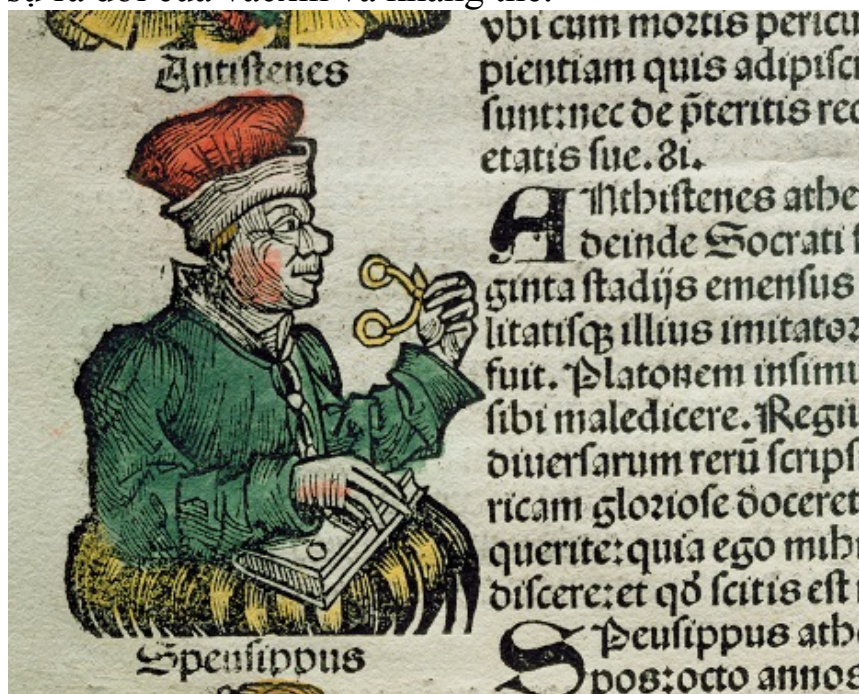 sự ra đời của vacxin và kháng thể.
Antistenes
vbi cum mortis pericu
pientiam quis adipisci
sunt:nec de p̄teritis rec
etatis sue.81.
ANthistenes athe
deinde Socrati
ginta stadijs emensus
litatisqꝫ illius imitator
fuit. Platonem insimu
sibi maledicere. Regu
diuersarum rerū scrips
ricam gloriose doceret
querite:quia ego mihi
discere:et qđ scitis est
SPeusippus athe
pos:octo annos
Speusippus